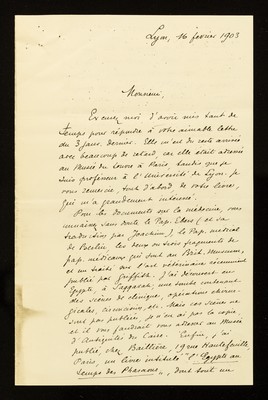 Lyon, 16 février 1903
Monsieur,
Excusez-moi d'avoir mis tant de
temps pour répondre à votre aimable lettre
du 3 janv. dernier. Elle m'est du reste arrivée
avec beaucoup de retard, car elle était adressée
au Musée du Louvre à Paris, tandis que je
suis professeur à l'Université de Lyon. Je
vous remercie, tout d'abord, de votre livre,
qui m'a grandement intéressé.
Pour les documents sur la médecine, vous
connaissez sans doute le Pap. Ebers (et sa
traduction par Joachim), le Pap. médical
de Berlin, les deux ou trois fragments de
pap. médicaux qui sont au Brit. Museum,
et un traité sur l'art vétérinaire récemment
publié par Griffith. J'ai découvert en
Egypte, à Saqqarah, une tombe contenant
des scènes de clinique, opérations chirur-
gicales, circoncision, etc. Mais ces scènes ne
sont pas publiées, je n'en ai pas la copie,
et il vous faudrait vous adresser au Musée
d'Antiquités du Caire. Enfin, j'ai
publié, chez Baillière, 19 rue Hautefeuille,
Paris, un livre intitulé "l'Egypte au
temps des Pharaons", dont tout un